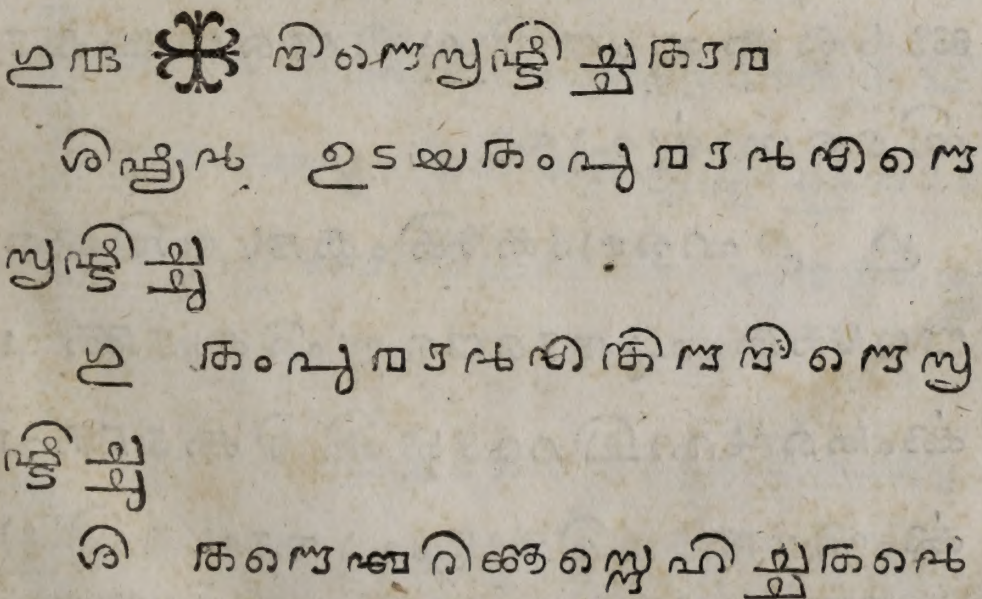 ഗുരു ✠ നിന്നെസൃഷ്ടിച്ചതാര
ശിഷ്യൻ ഉടയ്യതംപുരാൻഎന്നെ
സൃഷ്ടിച്ചു
ഗു തംപുരാൻഎന്തിന്നനിന്നെസൃ
ഷ്ടിച്ചു
ശി തന്നെ സ്നെഹിച്ച